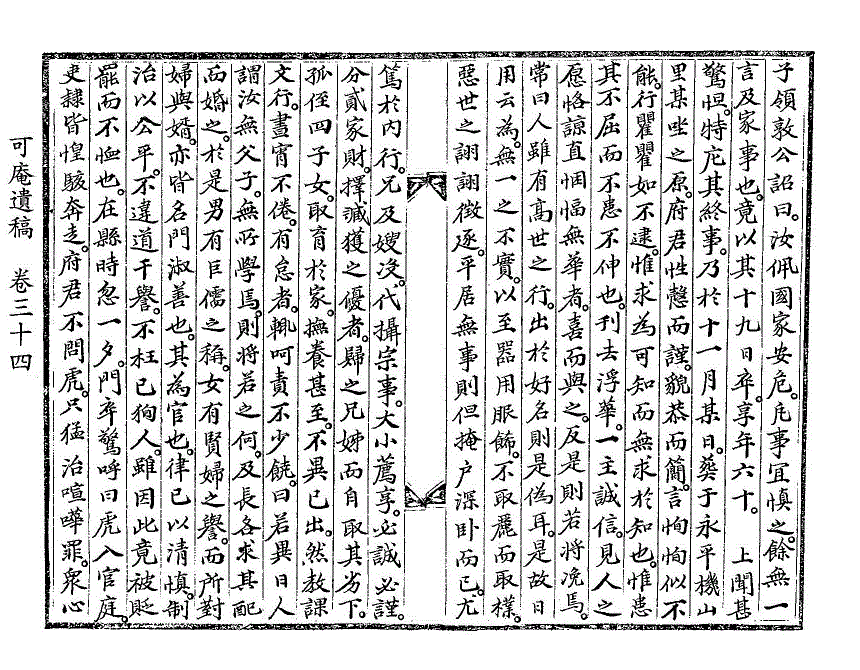 子領敦公詔曰。汝佩國家安危。凡事宜慎之。餘無一
言及家事也。竟以其十九日卒。享年六十。 上聞甚
驚怛。特庀其終事。乃於十一月某日。葬于永平機山
里某坐之原。府君性慤而謹。貌恭而簡。言恂恂似不
能。行瞿瞿如不逮。惟求為可知而無求於知也。惟患
其不屈而不患不伸也。刊去浮華。一主誠信。見人之
愿恪諒直悃愊無華者。喜而與之。反是則若將浼焉。
常曰人雖有高世之行。出於好名則是偽耳。是故日
用云為。無一之不實。以至器用服飾。不取麗而取樸。
惡世之詡詡徵逐。平居無事則但掩户深卧而已。尤
篤於內行。兄及嫂沒。代攝宗事。大小薦享。必誠必謹。
分貳家財。擇減獲之優者。歸之兄姊而自取其劣下。
孤侄四子女。取育於家。撫養甚至。不異已出。然教課
文行。晝宵不倦。有怠者。輒呵責不少饒。曰若異日人
謂汝無父子。無所學焉。則將若之何。及長各求其配
而婚之。於是男有巨儒之稱。女有賢婦之譽。而所對
婦與婿。亦皆名門淑善也。其為官也。律已以清慎。制
治以公平。不違道干譽。不枉已狥人。雖因此竟被貶
罷而不恤也。在縣時忽一夕。門卒驚呼曰虎入官庭。
吏隷皆惶駭奔走。府君不問虎。只猛治喧嘩罪。衆心
可庵遺稿 卷三十四